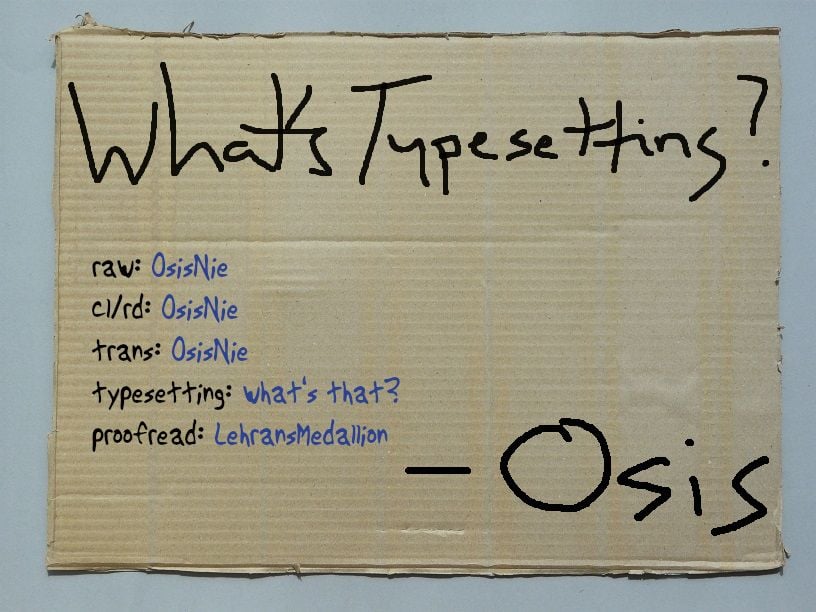 What's Typesetting?
raw: OsisNie
cl/rd: OsisNie
trans: OsisNie
typesetting: what's that?
proofread: LehransMedallion
— Osis